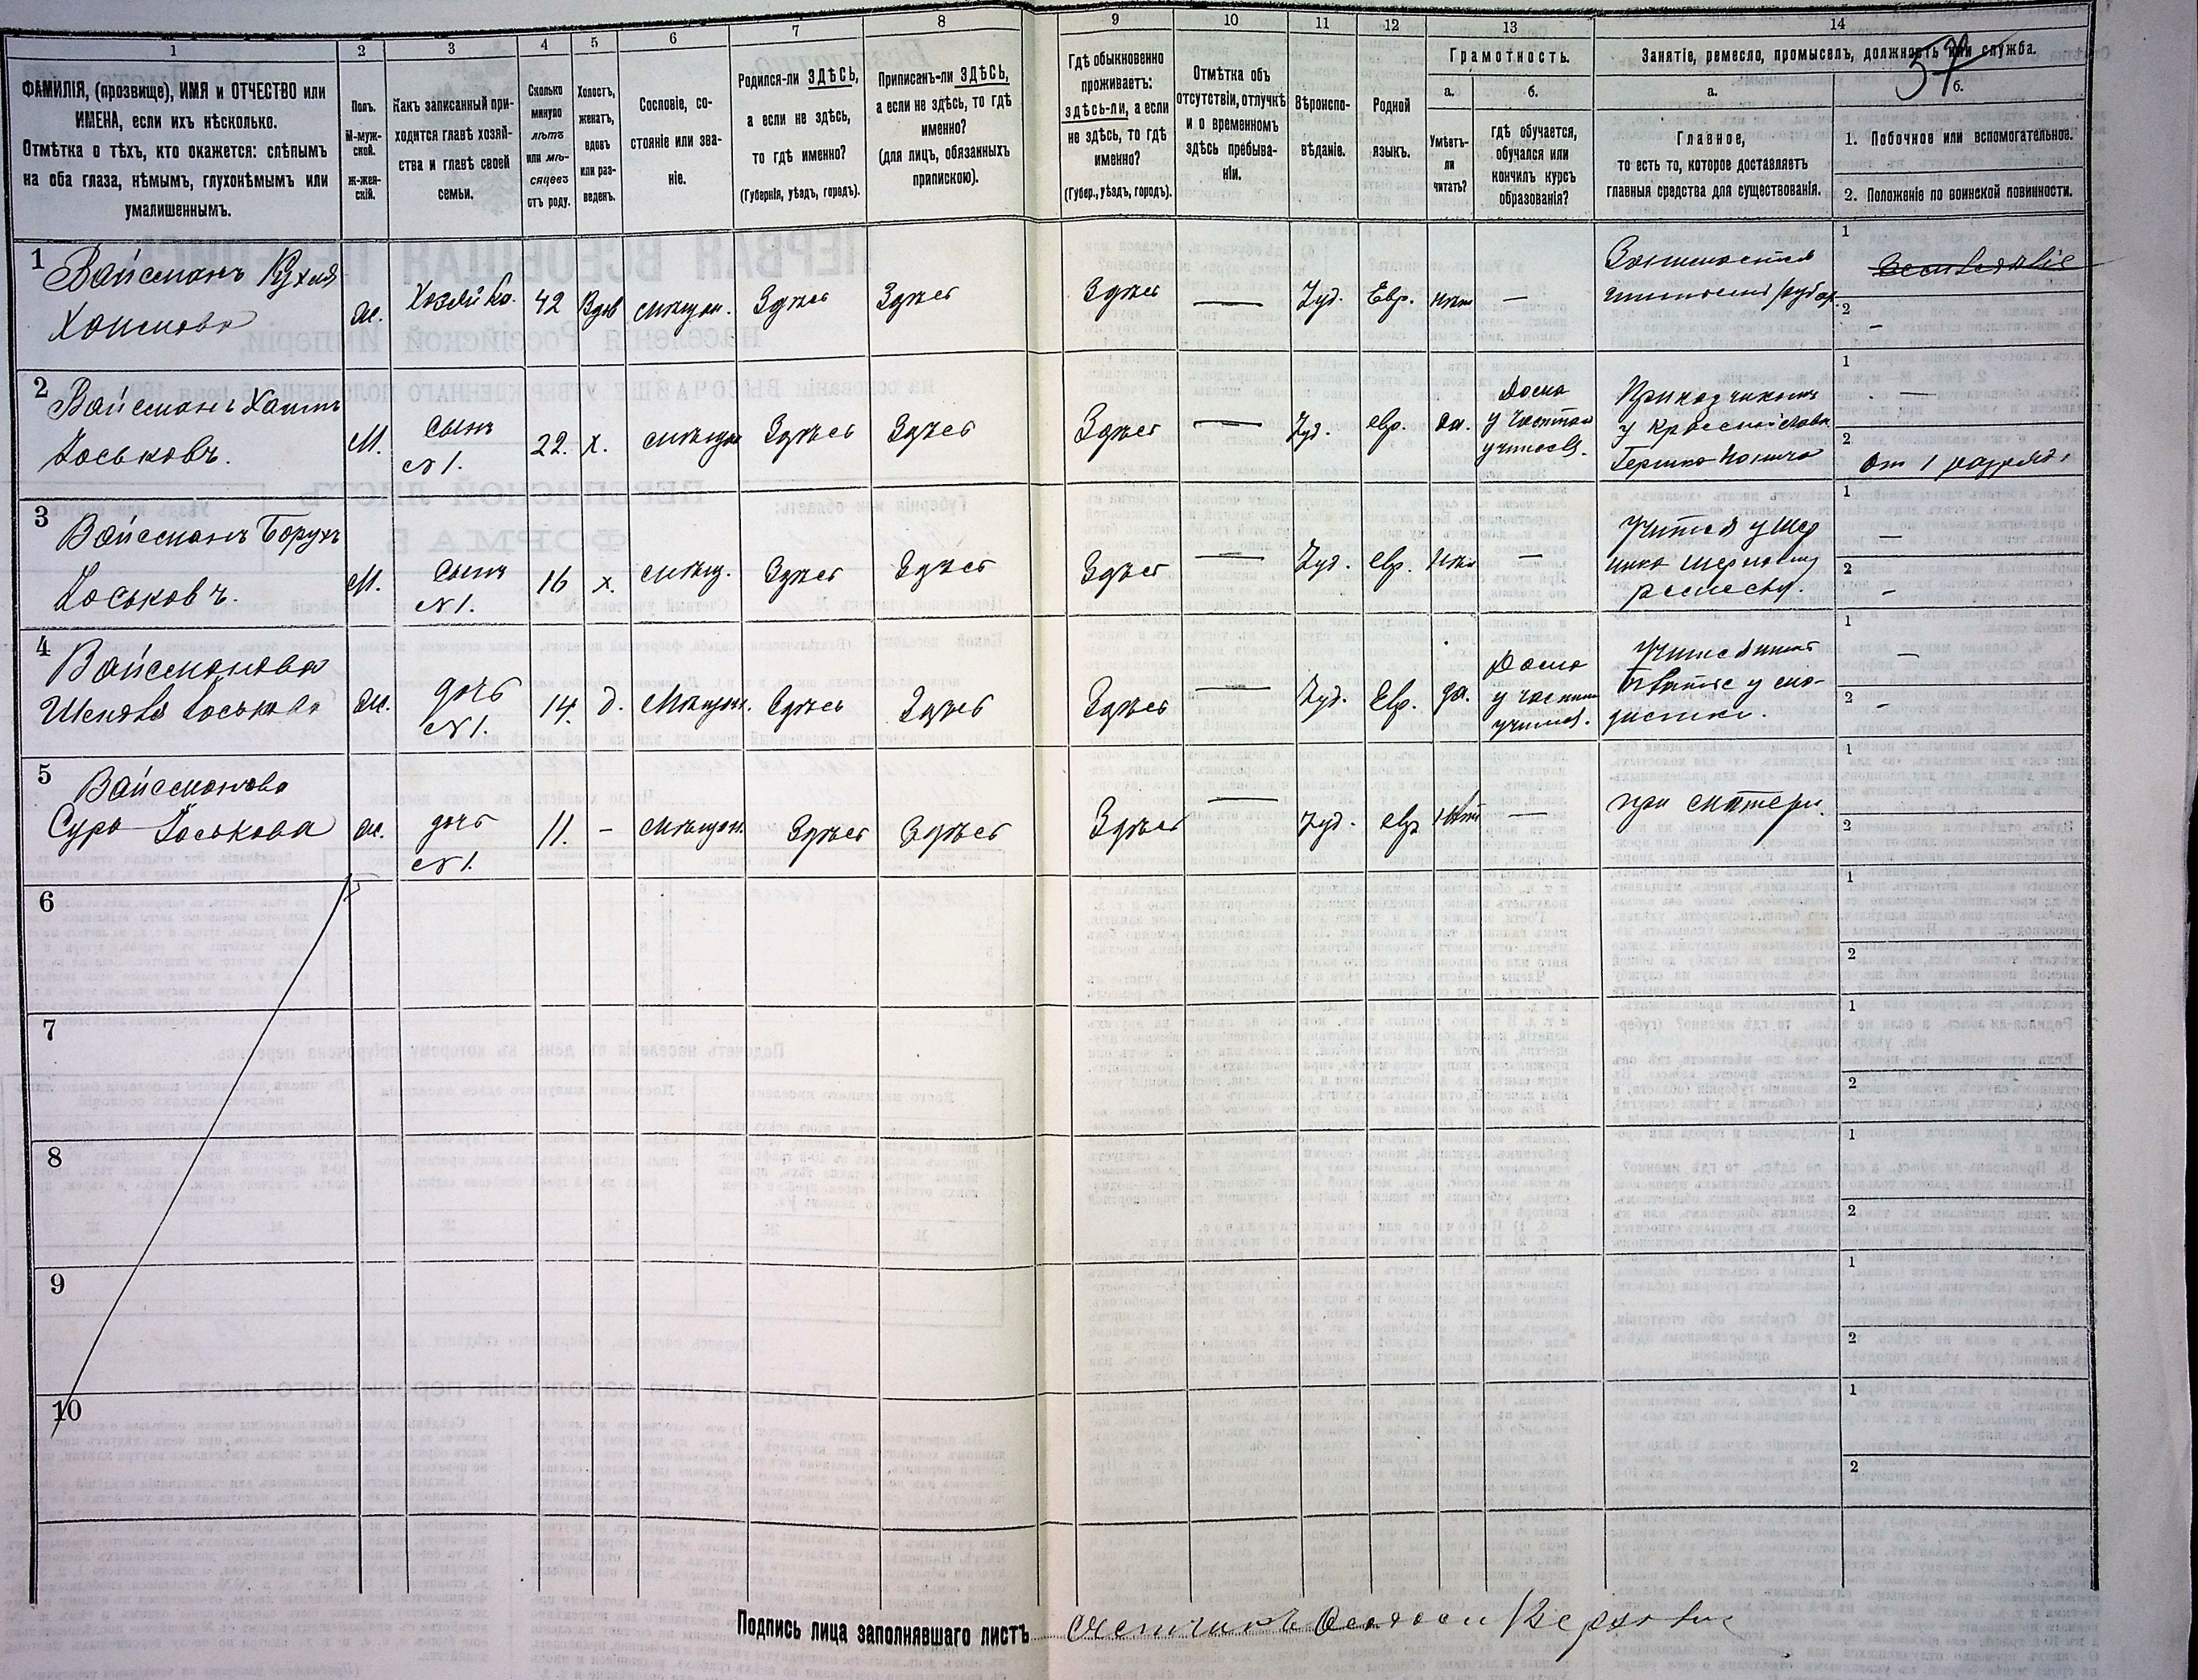 1 2 3 4 5 6 7 8 9 10 11 12 13 14
ФАМИЛІЯ, (прозвище), ИМЯ и ОТЧЕСТВО или
ИМЕНА, если ихъ нѣсколько.
Отмѣтка о тѣхъ, кто окажется: слѣпымъ
на оба глаза, нѣмымъ, глухонѣмымъ или
умалишеннымъ.
Полъ.
М-муж-
ской.
ж-жен-
скій.
Какъ записанный при-
ходится главѣ хозяй-
ства и главѣ своей
семьи.
Сколько
минуло
лѣтъ
или мѣ-
сяцевъ
отъ роду.
Холостъ,
женатъ,
вдовъ
или раз-
веденъ.
Сословіе, со-
стояніе или зва-
ніе.
Родился-ли ЗДѢСЬ,
а если не здѣсь,
то гдѣ именно?
(Губернія, уѣздъ, городъ).
Приписанъ-ли ЗДѢСЬ,
а если не здѣсь, то гдѣ
именно?
(для лицъ, обязанныхъ
припискою).
Гдѣ обыкновенно
проживаетъ:
здѣсь-ли, а если
не здѣсь, то гдѣ
именно?
(Губер., уѣздъ, городъ).
Отмѣтка объ
отсутствіи, отлучкѣ
и о временномъ
здѣсь пребыва-
ніи.
Вѣроиспо-
вѣданіе.
Родной
языкъ.
Грамотность.
а.
Умѣетъ-
ли
читать?
б.
гдѣ обучается,
обучался или
кончилъ курсъ
образованія?
Занятіе, ремесло, промыселъ, должность или служба.
а.
Главное,
то есть то, которое доставляетъ
главныя средства для существованія.
б.
1. Побочное или вспомогательное.
2. Положеніе по воинской повинности.
1 Вайсманъ
Хаимова
ж. Хозяйка. 42 Вдов мѣщан. Здѣсь Здѣсь Здѣсь — Іуд. Евр. нѣт —
1
2 —
2 Вайсманъ Хаимъ
Іоськовъ.
М. Сынъ
№1. 22. х. мѣщан Здѣсь Здѣсь Здѣсь — Іуд. евр. да.
Дома
у частнаго
Приказчикомъ
у
1 —
2 От 1 разряда
3 Вайсманъ Борухъ
Іоськовъ.
М. Сынъ
№1. 16 х. мѣщ. Здѣсь Здѣсь Здѣсь — Іуд. евр. нѣт —
Учится у
1 —
2 —
4 Вайсманова
Іоськова
ж. дочь
№1. 14. д. Мѣщан. Здѣсь Здѣсь Здѣсь — Іуд. Евр. да.
Дома
у частнаго
у мо-
дистки.
1 —
2 —
5 Вайсманова
Сура Іоськова
ж. дочь
№1. 11. — мѣщан. Здѣсь Здѣсь Здѣсь — Іуд. евр нѣт —
при матери.
1
2
6
1
2
7
1
2
8
1
2
9
1
2
10
1
2
Подпись лица заполнявшаго листъ Счетчикъ